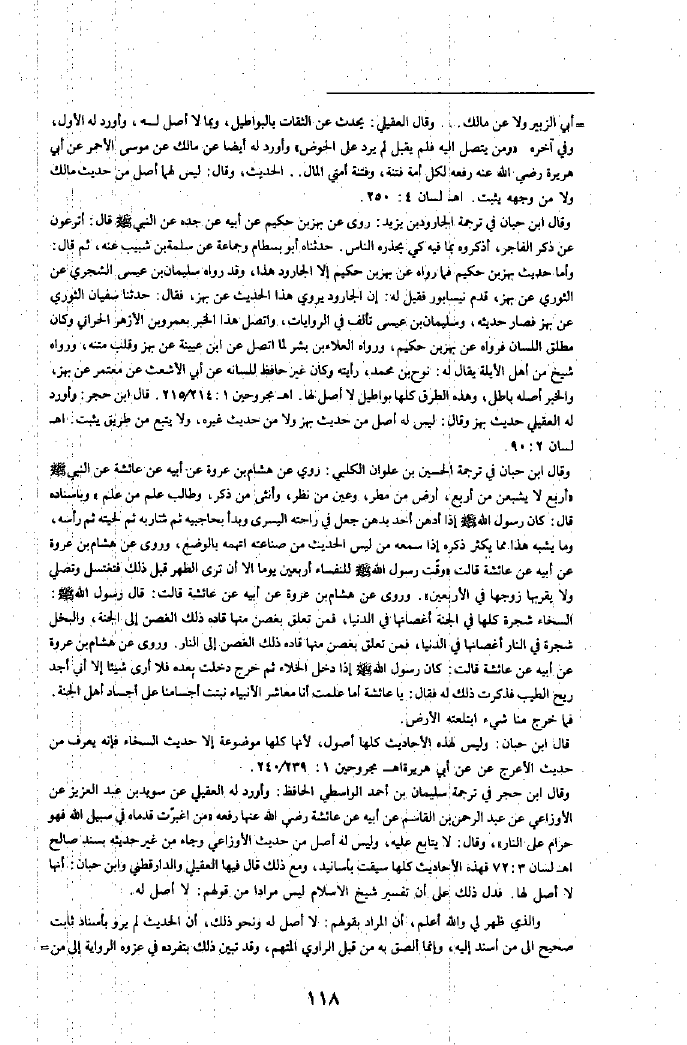 = أبي الزبير ولا عن مالك... وقال العقيلي: يحدث عن الثقات بالبواطيل، وبما لا أصل لــه، وأورد له الأول،
وفي آخره «ومن يتصل اليه فلم يقبل لم يرد على الحوض» وأورد له أيضا عن مالك عن موسى الأحمر عن أبي
هريرة رضي الله عنه رفعه لكل أمة فتنة، وفتنة أمتي المال.. الحديث، وقال: ليس لهما أصل من حديث مالك
ولا من وجهه يثبت. اهـ لسان ٤: ٢٥٠.
وقال ابن حبان في ترجمة الجارودبن يزيد: روى عن بهزبن حكيم عن أبيه عن جده عن النبي ﷺ قال: أترعون
عن ذكر الفاجر، أذكروه بما فيه كي يحذره الناس. حدثناه أبو بسطام وجماعة عن سلمةبن شبيب عنه، ثم قال:
وأما حديث بهزبن حكيم فما رواه عن بهزبن حكيم إلا الجارود هذا، وقد رواه سليمانبن عيسى الشجري عن
الثوري عن بهز، قدم نيسابور فقيل له: إن الجارود يروي هذا الحديث عن بهز، فقال: حدثنا سفيان الثوري
عن بهز فصار حديثه، وسليمانبن عيسى تألف في الروايات، واتصل هذا الخبر بعمروبن الأزهر الحراني وكان
مطلق اللسان فرواه عن بهزبن حكيم، ورواه العلاءبن بشر لما اتصل عن ابن عيينة عن بهز وقلب متنه، ورواه
شيخ من أهل الأبلة يقال له: نوحبن محمد، رأيته وكان غير حافظ للسانه عن أبي الأشعث عن معتمر عن بهز،
والخبر أصله باطل، وهذه الطرق كلها بواطيل لا أصل لها. اهـ مجروحين ١: ٢١٥/٢١٤. قال ابن حجر: وأورد
له العقيلي حديث بهز وقال: ليس له أصل من حديث بهز ولا من حديث غيره، ولا يتبع من طريق يثبت. اهـ
لسان ٢: ٩٠.
وقال ابن حبان في ترجمة الحسين بن علوان الكلبي: روي عن هشامبن عروة عن أبيه عن عائشة عن النبي ﷺ
«أربع لا يشبعن من أربع، أرض من مطر، وعين من نظر، وأنثى من ذكر، وطالب علم من علم» وبأسناده
قال: كان رسول الله ﷺ إذا أدهن أحد يدهن جعل في راحته اليسرى وبدأ بحاجبيه ثم شاربه ثم لحيته ثم رأسه،
وما يشبه هذا مما يكثر ذكره إذا سمعه من ليس الحديث من صناعته اتهمه بالوضع، وروى عن هشامبن عروة
عن أبيه عن عائشة قالت «وقّت رسول الله ﷺ للنفساء أربعين يوما الا أن ترى الطهر قبل ذلك فتغتسل وتصلي
ولا يقربها زوجها في الأربعين». وروى عن هشامبن عروة عن أبيه عن عائشة قالت: قال رسول الله ﷺ:
السخاء شجرة كلها في الجنة أغصانها في الدنيا، فمن تعلق بغصن منها قاده ذلك الغصن إلى الجنة، والبخل
شجرة في النار أغصانها في الدنيا، فمن تعلق بغصن منها قاده ذلك الغصن إلى النار. وروى عن هشامبن عروة
عن أبيه عن عائشة قالت: كان رسول الله ﷺ إذا دخل الخلاء ثم خرج دخلت بعده فلا أرى شيئا إلا أني أجد
ريح الطيب فذكرت ذلك له فقال: يا عائشة أما علمت أنا معاشر الأنبياء نبتت أجسامنا على أجساد أهل الجنة.
فما خرج منا شيء ابتلعته الأرض.
قال ابن حبان: وليس لهذه الأحاديث كلها أصول، لأنها كلها موضوعة إلا حديث السخاء فإنه يعرف من
حديث الأعرج عن عن أبي هريرةاهـ مجروحين ١: ٢٤٠/٢٣٩.
وقال ابن حجر في ترجمة سليمان بن أحمد الواسطي الحافظ: وأورد له العقيلي عن سويدبن عبد العزيز عن
الأوزاعي عن عبد الرحمنبن القاسم عن أبيه عن عائشة رضي الله عنها رفعه «من اغبرّت قدماه في سبيل الله فهو
حرام على النار»، وقال: لا يتابع عليه، وليس له أصل من حديث الأوزاعي وجاء من غير حديثه بسند صالح
اهـ لسان ٣: ٧٢ فهذه الأحاديث كلها سيقت بأسانيد، ومع ذلك قال فيها العقيلي والدارقطني وابن حبان: أنها
لا أصل لها. فدل ذلك على أن تفسير شيخ الاسلام ليس مرادا من قولهم: لا أصل له.
والذي ظهر لي والله أعلم، أن المراد بقولهم: لا أصل له ونحو ذلك، أن الحديث لم يرو بأسناد ثابت
صحيح الى من أسند إليه، وإنما ألصق به من قبل الراوي المتهم، وقد تبين ذلك بتفرده في عزوه الرواية إلى من =
١١٨